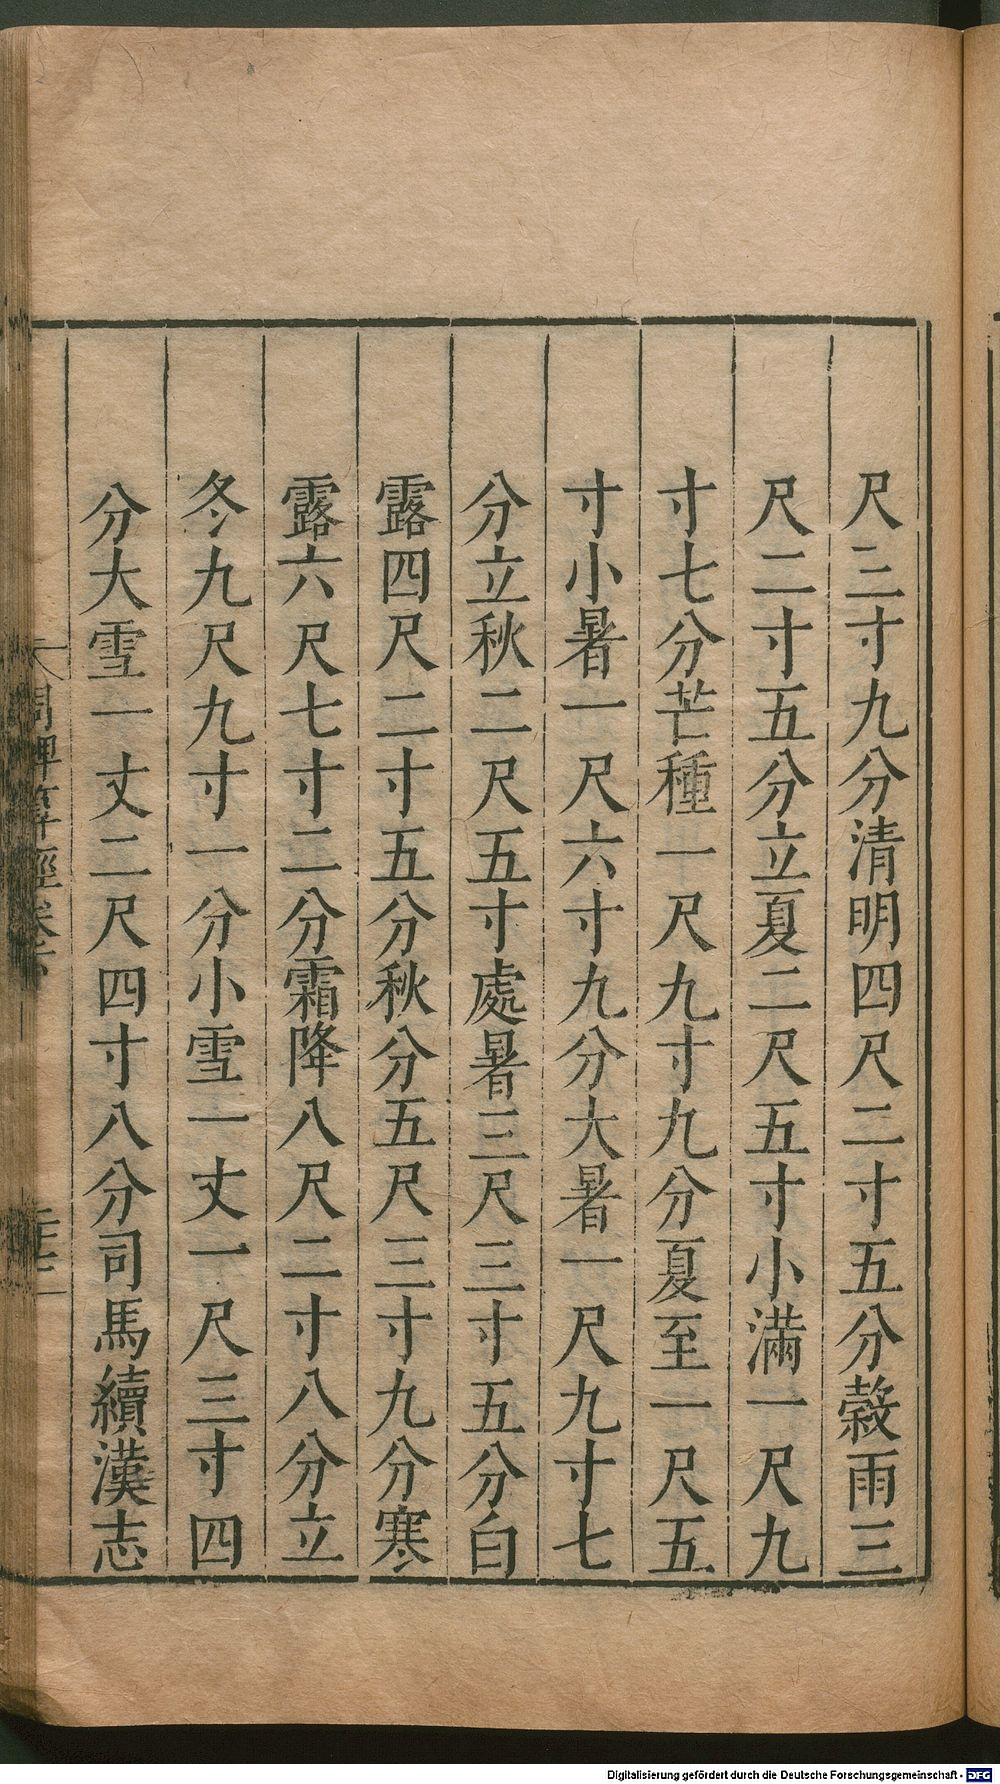 尺三寸九分清明四尺二寸五分穀雨三
尺二寸五分立夏二尺五寸小滿一尺九
寸七分芒種一尺九寸九分夏至一尺五
寸小暑一尺六寸九分大暑一尺九寸七
分立秋二尺五寸處暑三尺三寸五分白
露四尺二寸五分秋分五尺三寸九分寒
露六尺七寸二分霜降八尺二寸八分立
冬九尺九寸一分小雪一丈一尺三寸四
分大雪一丈二尺四寸八分司馬續漢志
周髀算經卷
Digitalisierung gefördert durch die Deutsche Forschungsgemeinschaft - DFG